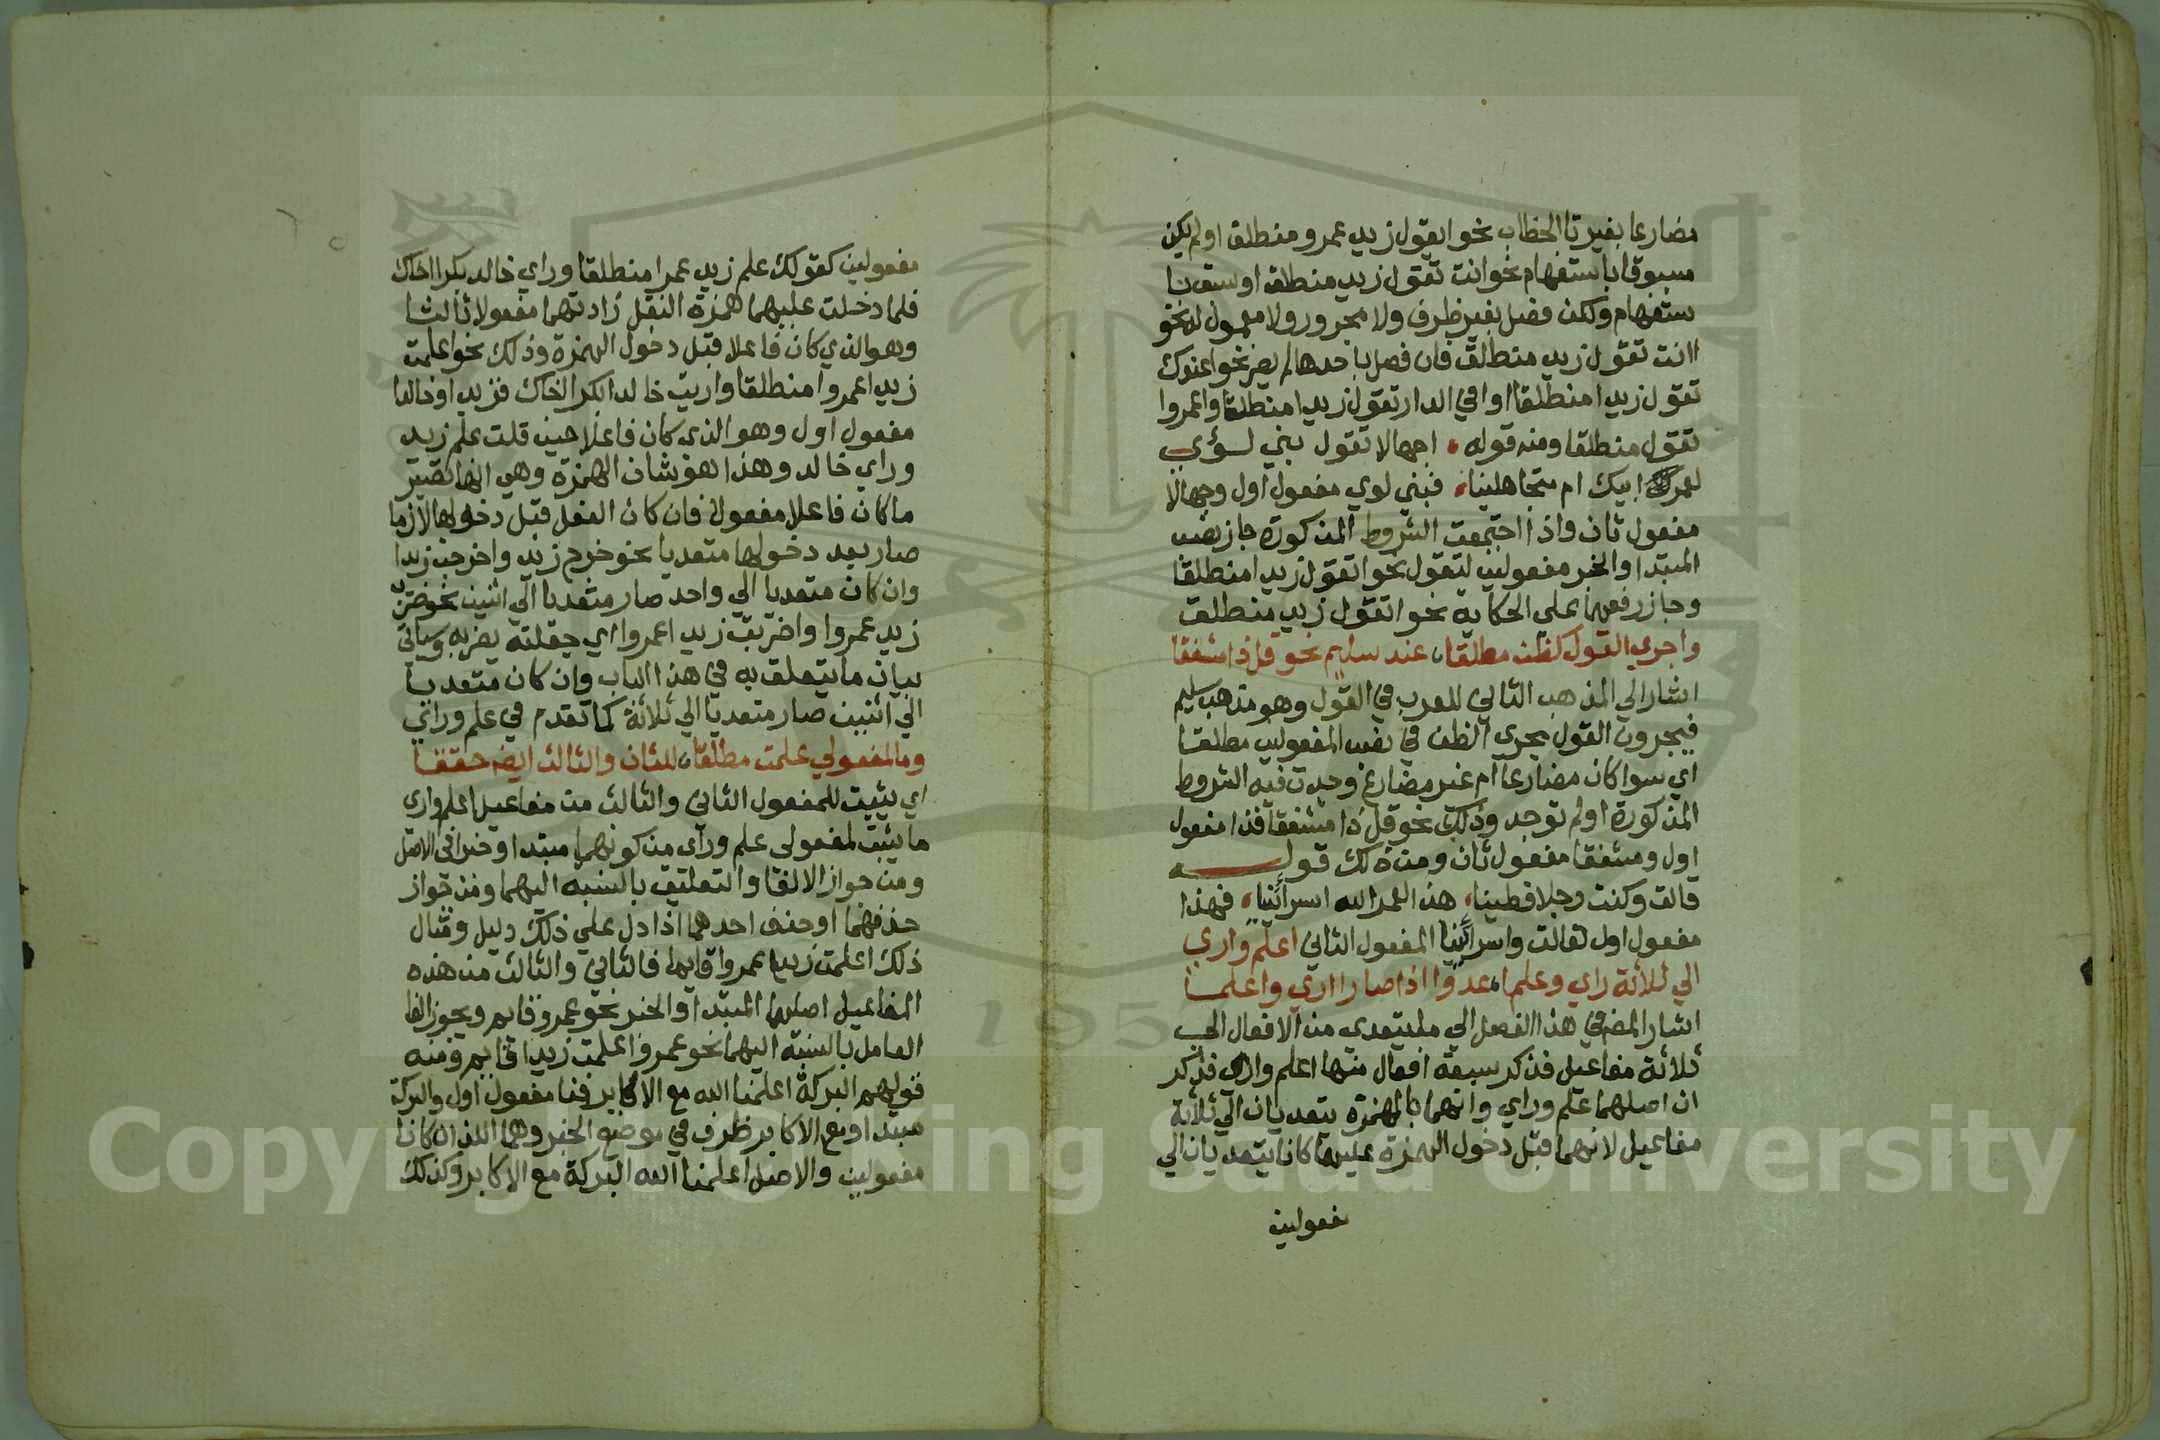 مضارعا بغير تا الخطاب نحو ايقول زيد عمرو منطلق او لم يكن
مسبوقا باستفهام نحو انت تقول زيد منطلق او سبق با
ستفهام ولكن فصل بغير ظرف ولا مجرور ولا معمول له نحو
اانت تقول زيد منطلق فان فصل باحدها لم يضر نحو اعندك
تقول زيدا منطلقا او افي الدار تقول زيدا منطلقا واعمروا
تقول منطلقا ومنه قوله اجهالا تقول بني لؤي
لعمر ابيك ام متجاهلينا فبني لوي مفعول اول وجهالا
مفعول ثان واذا اجتمعت الشروط المذكورة جاز نصب
المبتدا والخبر مفعولين لتقول نحو اتقول زيدا منطلقا
وجاز رفعهما على الحكاية نحو اتقول زيد منطلق
واجري القول كظن مطلقا عند سليم نحو قل ذا مشفقا
اشار الي المذهب الثاني للعرب في القول وهو مذهب سليم
فيجرون القول مجري الظن في نصب المفعولين مطلقا
اي سوا كان مضارعا ام غير مضارع وجدت فيه الشروط
المذكورة او لم توجد وذلك نحو قل ذا مشفقا فذا مفعول
اول ومشفقا مفعول ثان ومن ذلك قوله
قالت وكنت رجلا فطينا هذا لعمر الله اسرائينا فهذا
مفعول اول لقالت واسرائينا المفعول الثاني اعلم واري
الي ثلاثة راي وعلما عدوا اذا صارا اري واعلما
اشار المص في هذا الفصل الي ما يتعدى من الافعال الي
ثلاثة مفاعيل فذكر سبعة افعال منها اعلم واري فذكر
ان اصلهما علم وراي وانهما بالهمزة يتعديان الي ثلاثة
مفاعيل لانهما قبل دخول الهمزة عليهما كانا يتعديان الي
مفعولين
مفعولين كقولك علم زيد عمرا منطلقا وراي خالد بكرا اخاك
فلما دخلت عليهما همزة النقل زادتهما مفعولا ثالثا
وهو الذي كان فاعلا قبل دخول الهمزة وذلك نحو اعلمت
زيدا عمروا منطلقا واريت خالدا بكرا اخاك فزيدا وخالدا
مفعول اول وهو الذي كان فاعلا حين قلت علم زيد
وراي خالد وهذا هو شان الهمزة وهي انها تصير
ما كان فاعلا مفعولا فان كان الفعل قبل دخولها لازما
صار بعد دخولها متعديا نحو خرج زيد واخرجت زيدا
وان كان متعديا الي واحد صار متعديا الي اثنين نحو ضرب
زيد عمروا واضربت زيدا عمروا اي جعلته يضربه وسياتي
بيان ما يتعلق به في هذا الباب وان كان متعديا
الي اثنين صار متعديا الي ثلاثة كما تقدم في علم وراي
وما لمفعولي علمت مطلقا للثان والثالث ايضا حققا
اي يثبت للمفعول الثاني والثالث من مفاعيل اعلم واري
ما يثبت لمفعولى علم وراي من كونهما مبتدا وخبرا في الاصل
ومن جواز الالغا والتعليق بالنسبة اليهما ومن جواز
حذفهما او حذف احدهما اذا دل علي ذلك دليل ومثال
ذلك اعلمت زيدا عمروا قايما فالثاني والثالث من هذه
المفاعيل اصلهما المبتدا والخبر نحو عمرو قايم ويجوز الغا
العامل بالنسبة اليهما نحو عمرو اعلمت زيدا قايم ومنه
قولهم البركة اعلمنا الله مع الاكابر فنا مفعول اول والبركة
مبتدا ومع الاكابر ظرف في موضع الخبر وهما اللذان كانا
مفعولين والاصل اعلمنا الله البركة مع الاكابر وكذلك
Copyright © King Saud University
1957